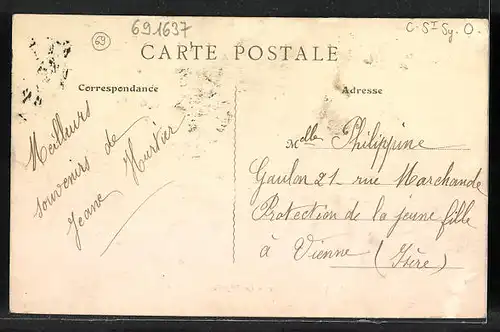 69
691637
C. St Sy. O.
CARTE POSTALE
Correspondance
Adresse
Meilleurs
souvenirs de
Jeane Hurtier
Melle Philippine
Gaulon 21 rue Marchande
Protection de la jeune fille
à Vienne (Isère)